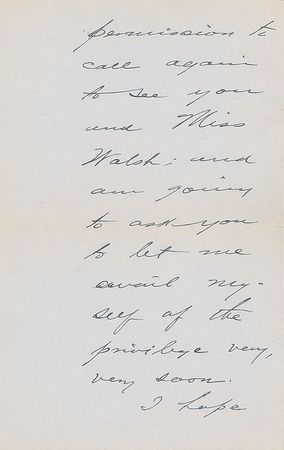 permission to
call again
to see you
and Miss
Walsh; and
am going
to ask you
to let me
avail my-
self of the
privilege very,
very soon.
I hope